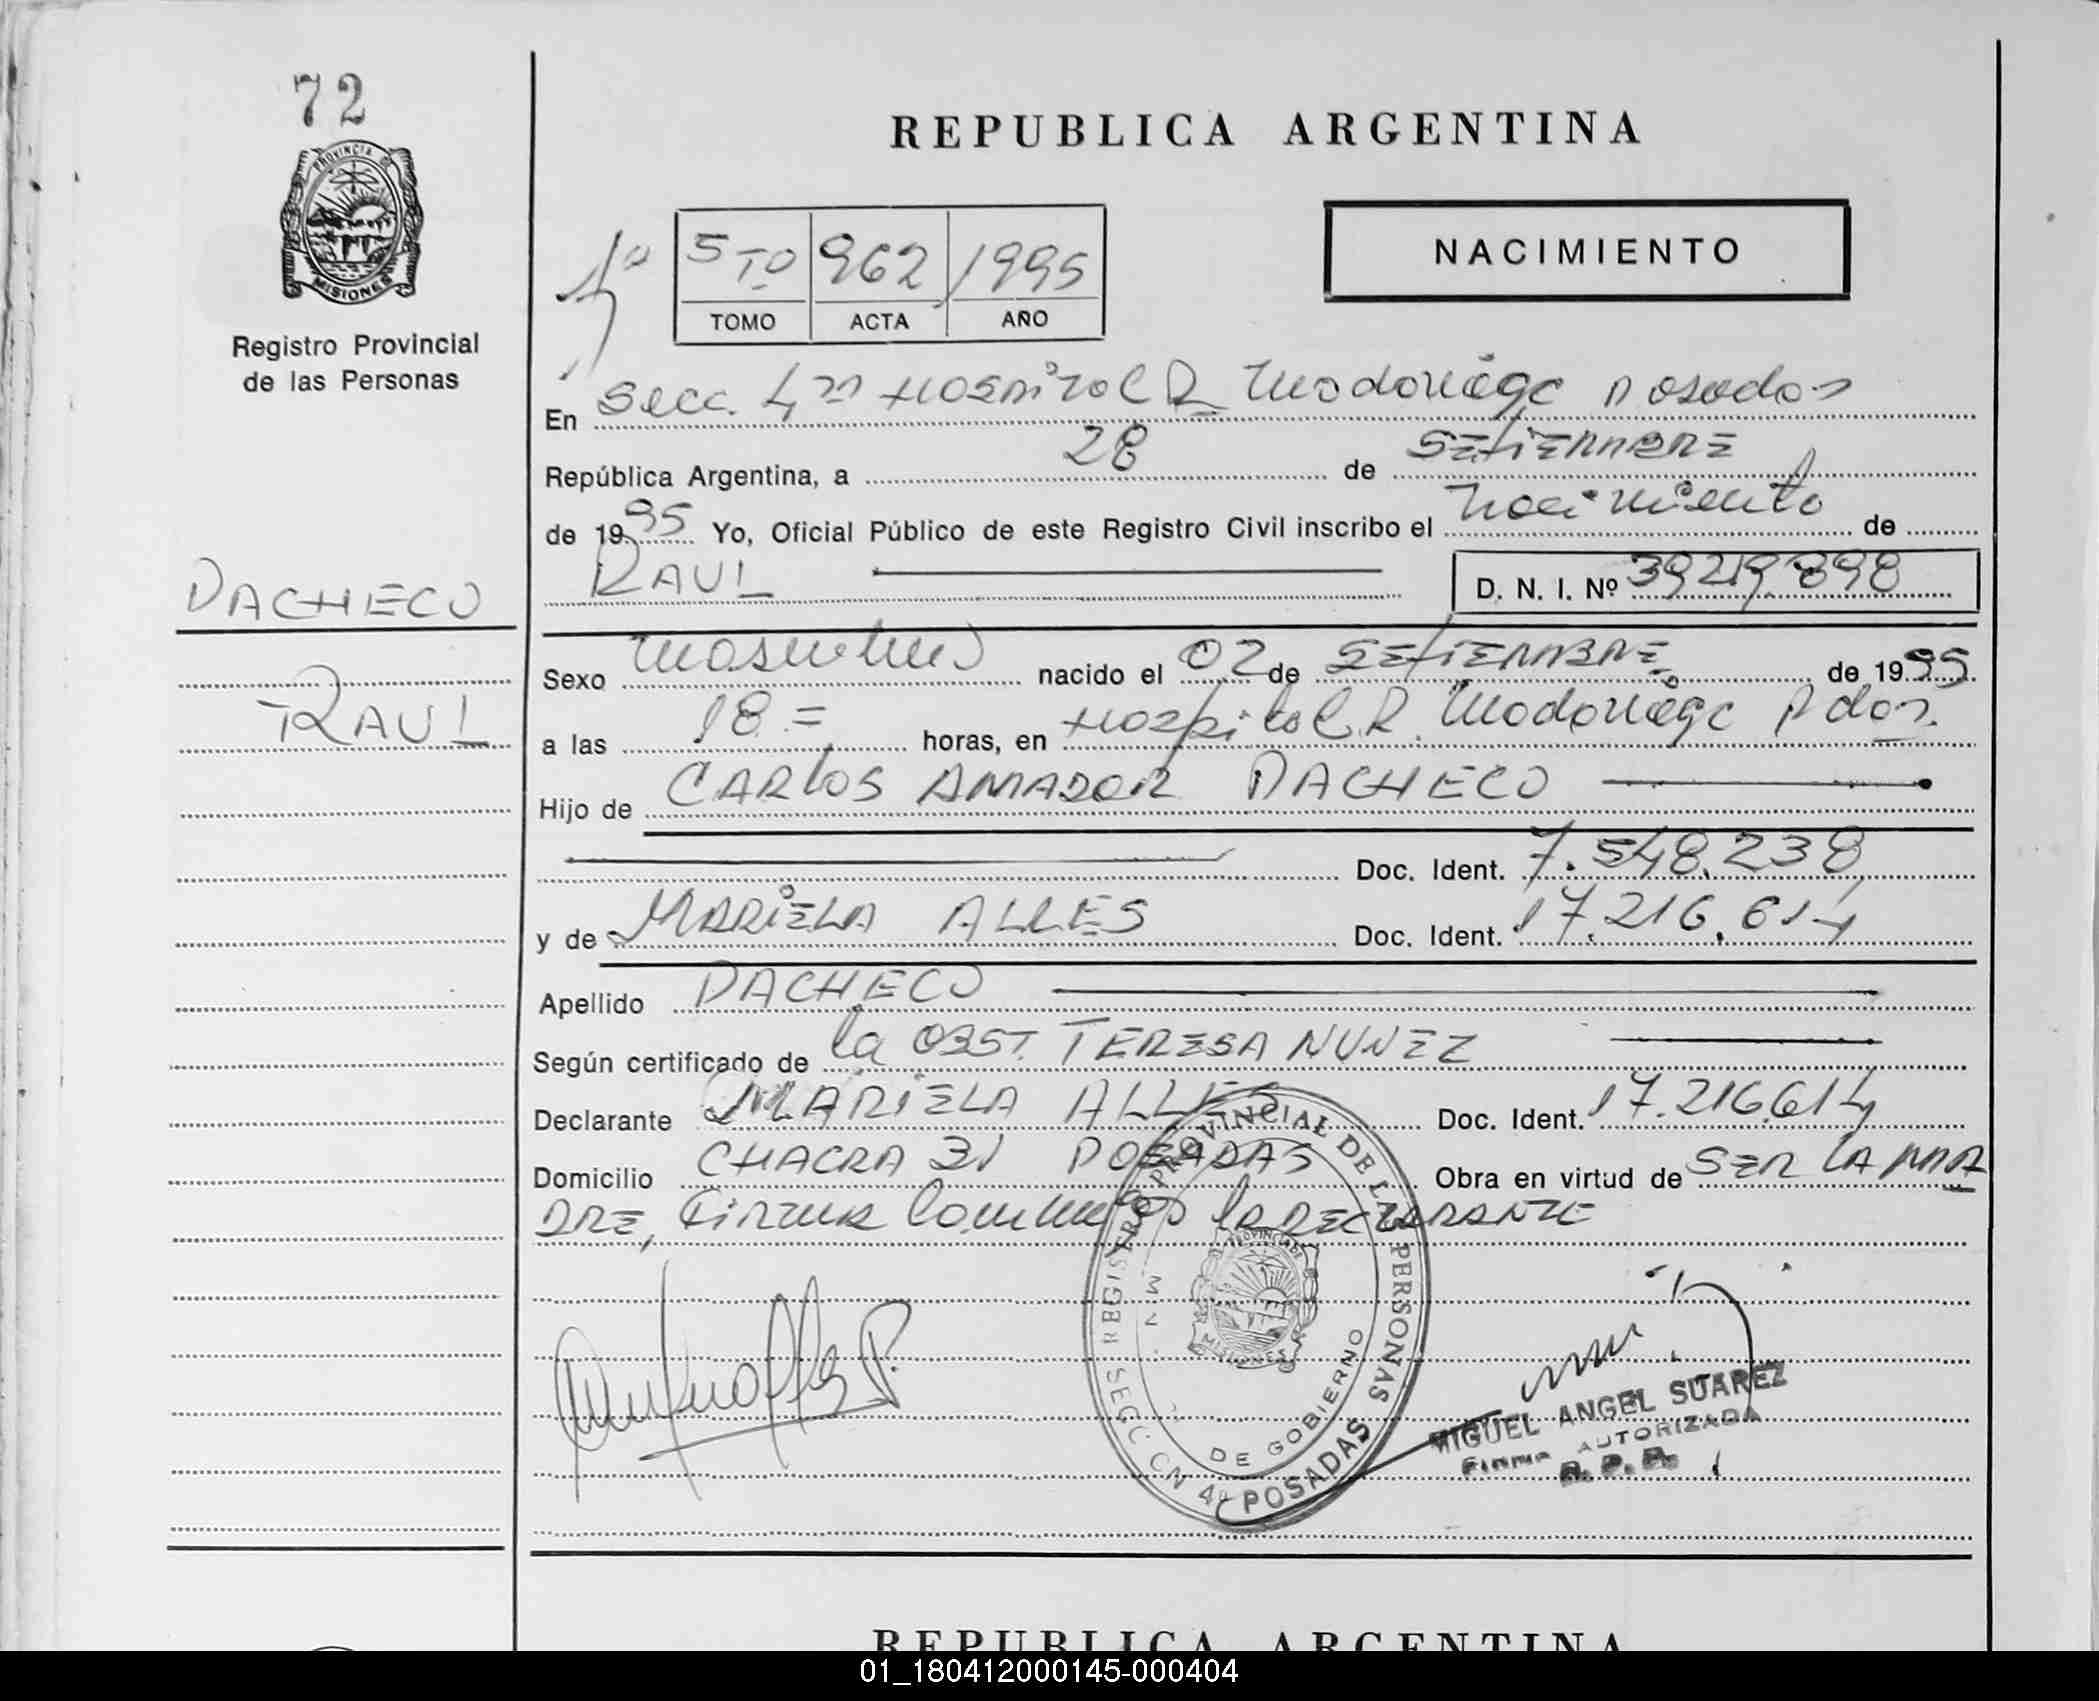 72
PROVINCIA DE
MISIONES
Registro Provincial
de las Personas
REPUBLICA ARGENTINA
NACIMIENTO
5TO 962 1995
TOMO ACTA AÑO
En Secc. 4ta Hospital R Madariaga Posadas
República Argentina, a 28 de SETIEMBRE
de 1995 Yo, Oficial Público de este Registro Civil inscribo el nacimiento de
RAUL D. N. I. Nº 39219898
PACHECO
RAUL
Sexo masculino nacido el 02 de SETIEMBRE de 1995
a las 18 = horas, en Hospital R. Madariaga Pdas.
Hijo de CARLOS AMADOR PACHECO
Doc. Ident. 7.548.238
y de MARIELA ALLES Doc. Ident. 17.216.614
Apellido PACHECO
Según certificado de la OBST. TERESA NUNEZ
Declarante MARIELA ALLES Doc. Ident. 17.216.614
Domicilio CHACRA 31 POSADAS Obra en virtud de SER LA MA
DRE, Firma conmigo la DECLARANTE
REGISTRO PROVINCIAL DE LAS PERSONAS
SECCION 4ª POSADAS
DE GOBIERNO
PROVINCIA DE
MISIONES
MIGUEL ANGEL SUAREZ
Firma AUTORIZADA
R. P. P.
REPUBLICA ARGENTINA
01_180412000145-000404